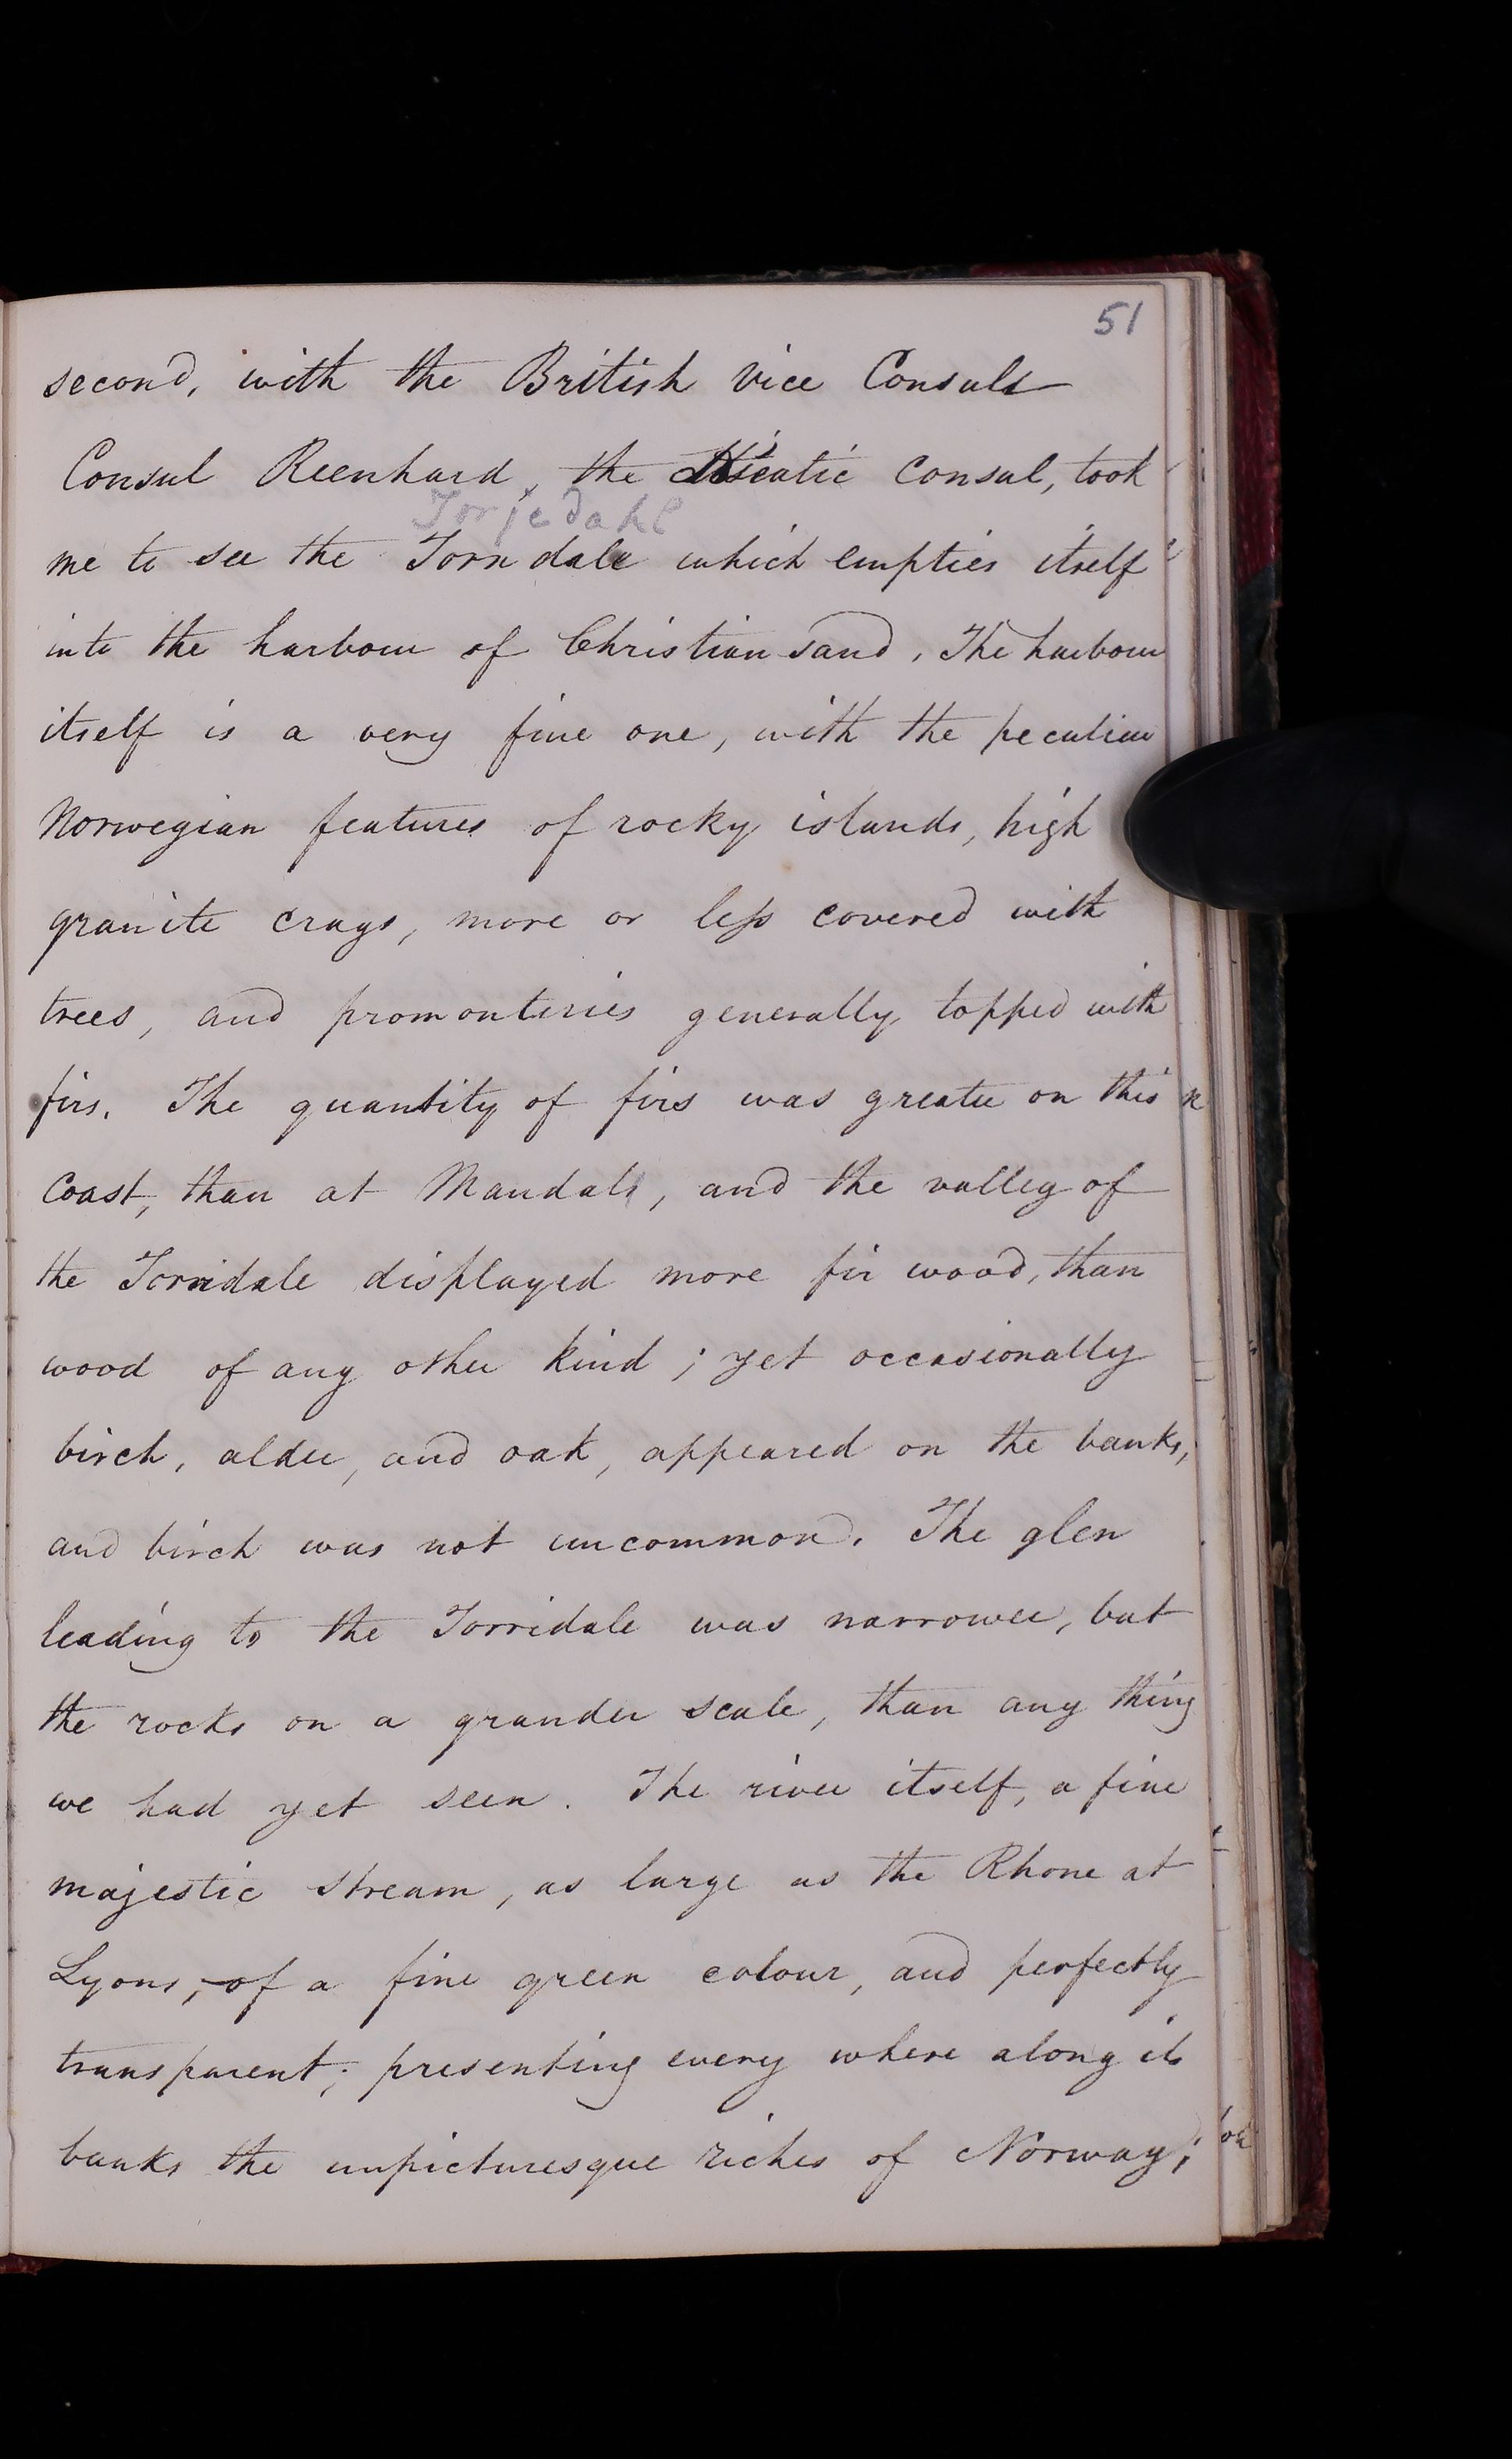 51
second, with the British vice Consul
Consul Reenhard, the consul, took
Torjedahl
me to see the Torndale which empties itself
into the harbour of Christian sand. The harbour
itself is a very fine one, with the peculiar
Norwegian features of rocky islands, high
granite crags, more or less covered with
trees, and promontories generally topped with
firs. The quantity of firs was greater on this
coast, than at Mandals, and the valley of
the Torridale displayed more fir wood, than
wood of any other kind; yet occasionally
birch, alder, and oak, appeared on the banks,
and birch was not uncommon. The glen
leading to the Torridale was narrower, but
the rocks on a grander scale, than any thing
we had yet seen. The river itself, a fine
majestic stream, as large as the Rhone at
Lyons, of a fine green colour, and perfectly
transparent; presenting every where along its
banks the unpicturesque riches of Norway;